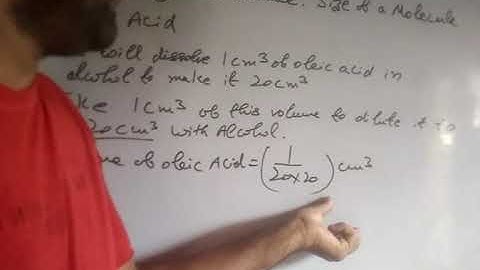 Size of a Molecule
Acid
will dissolve 1cm³ of oleic acid in
alcohol to make it 20cm³
1cm³ of this volume to dilute it to
20cm³ with Alcohol.
of oleic Acid = (1/20×20) cm³